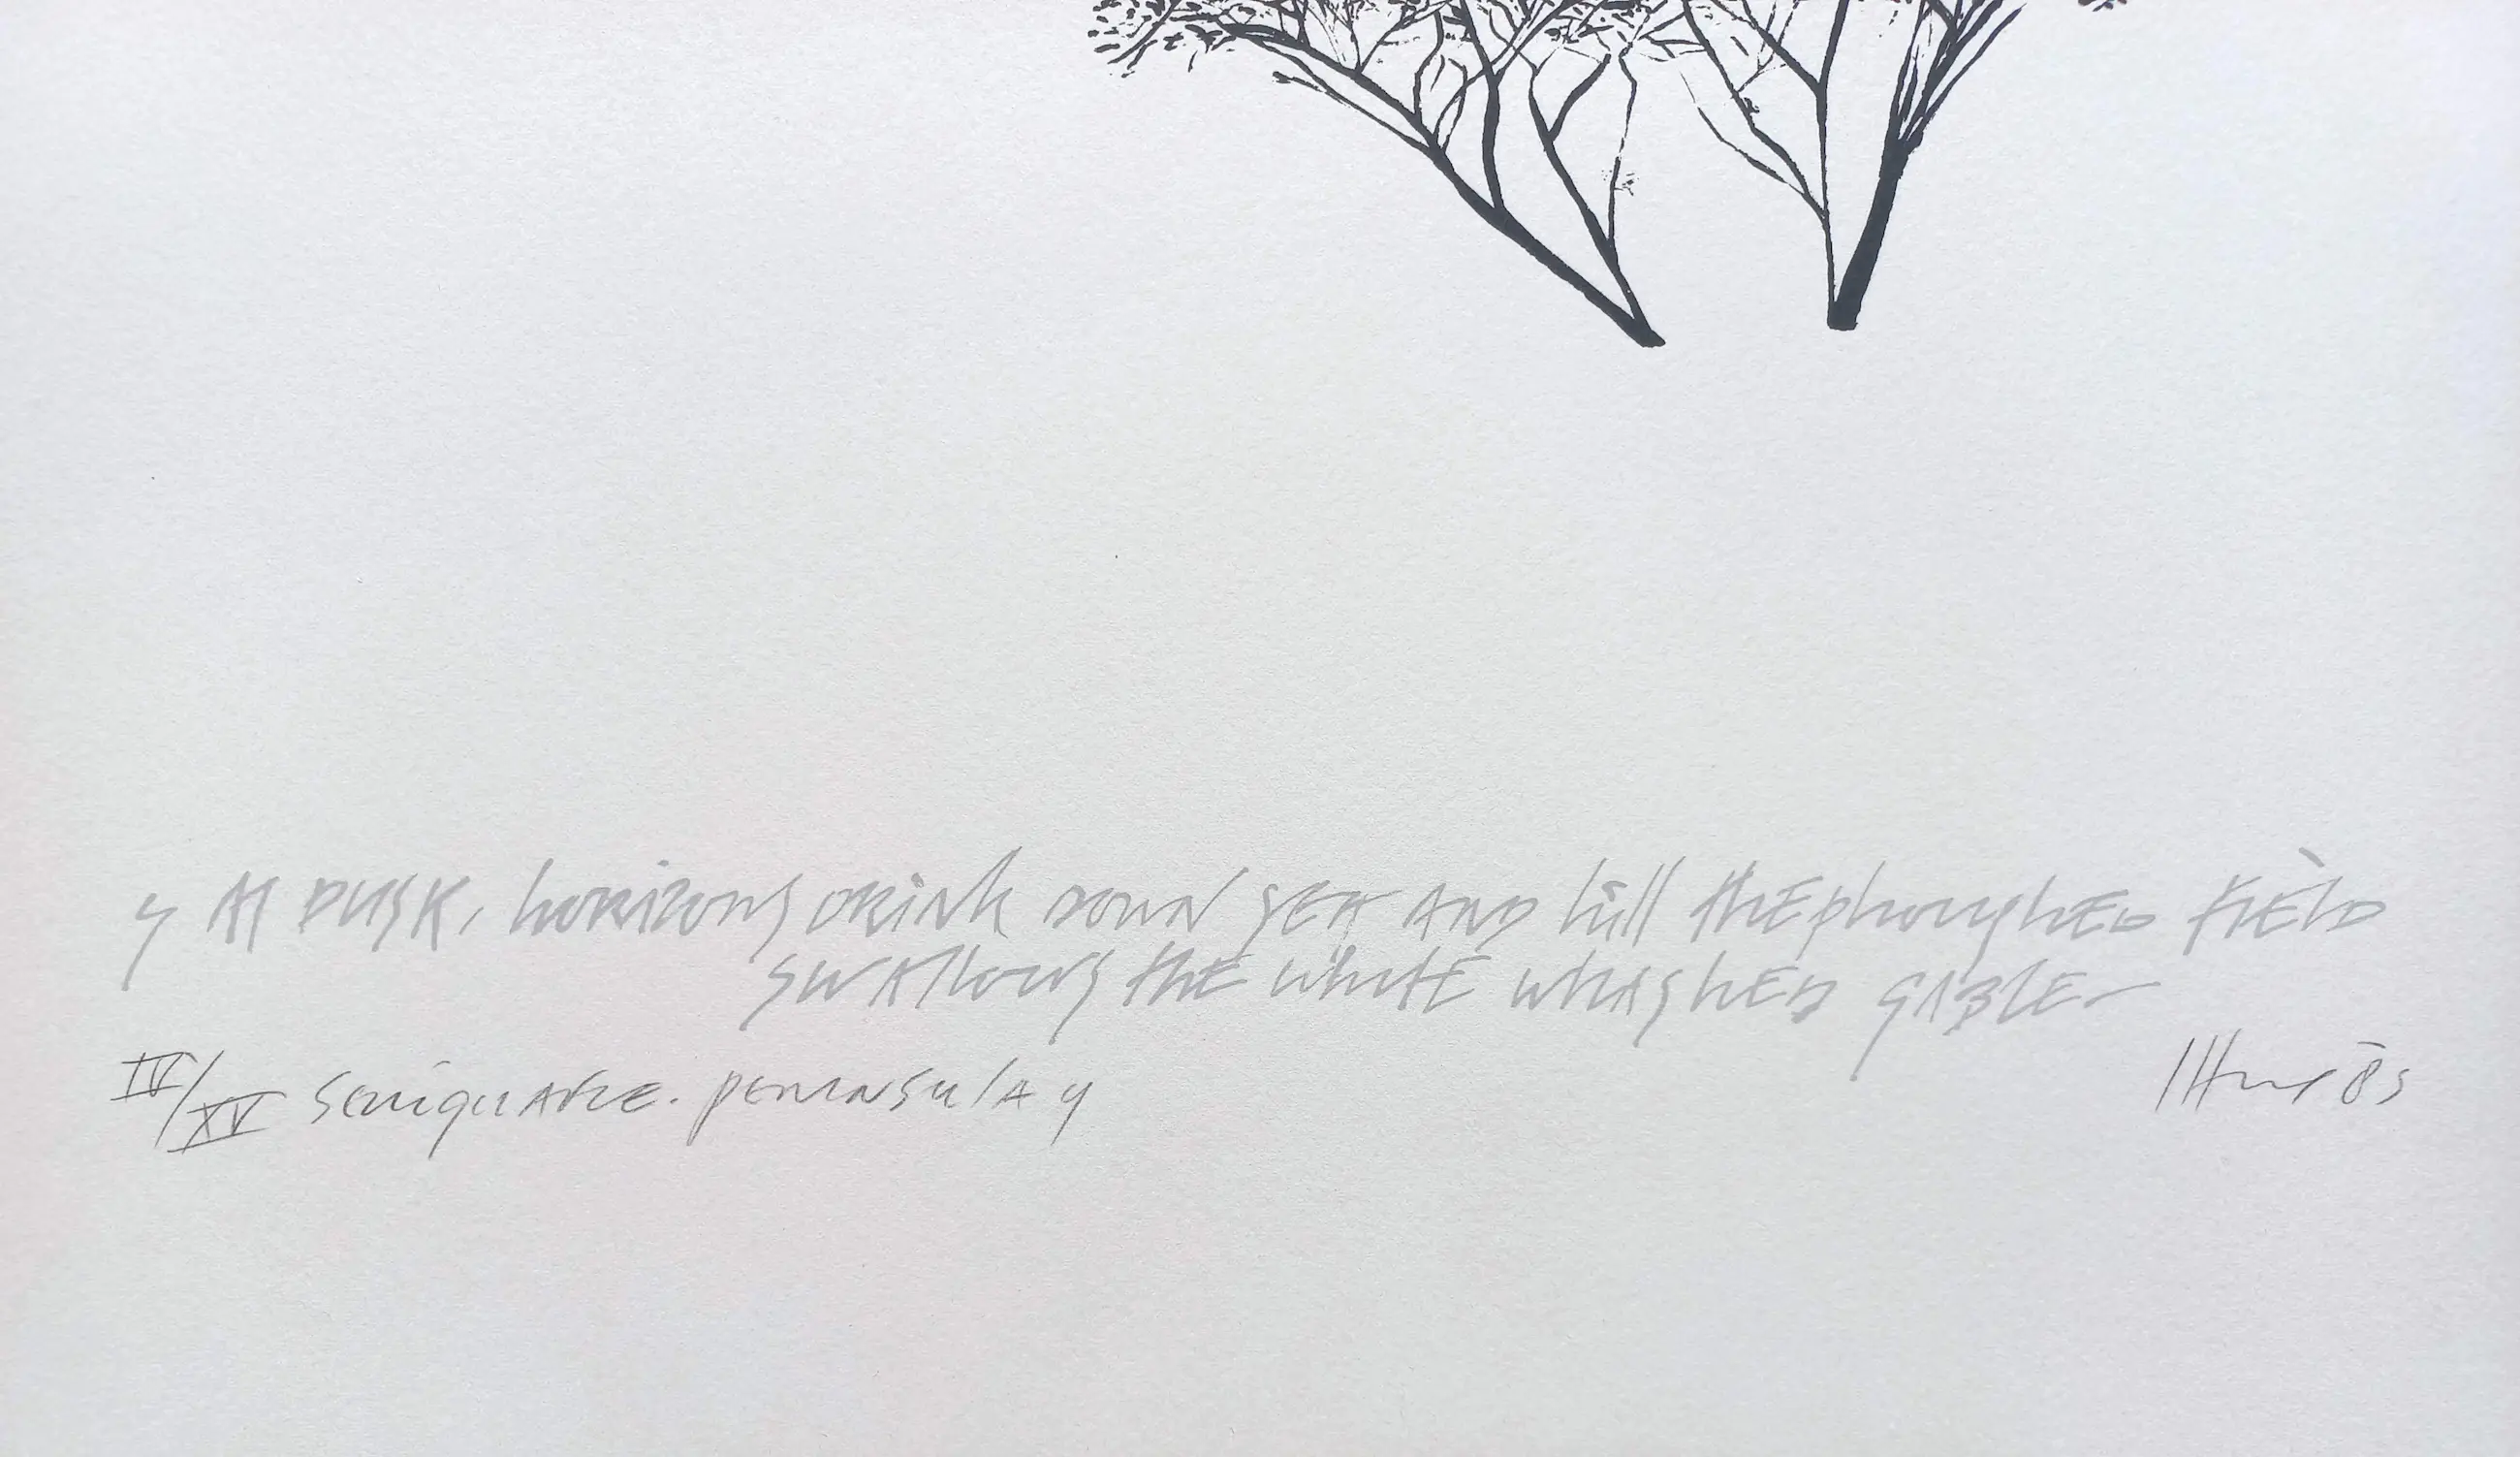 y At DUSK, horizons drink down sea and hill the ploughed field
swallows the white whashed gable
IV/XV peninsula y
85